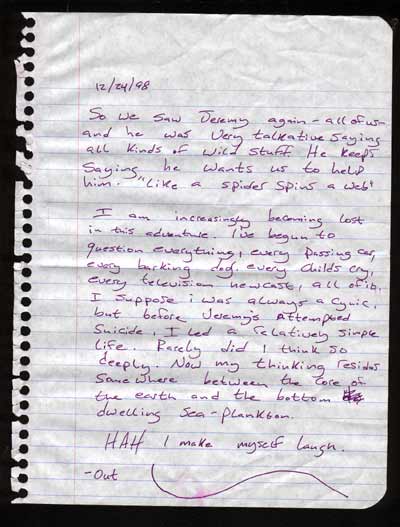 12/24/98
So we saw Jeremy again - all of us -
and he was very talkative saying
all kinds of wild stuff. He keeps
saying he wants us to help
him. "Like a spider spins a web"
I am increasingly becoming lost
in this adventure. I've begun to
question everything, every passing car,
every barking dog, every childs cry,
every television newcast, all of it.
I suppose i was always a cynic,
but before Jeremy's attempted
suicide, I led a relatively simple
life. Rarely did I think so
deeply. Now my thinking resides
somewhere between the core of
the earth and the bottom
dwelling sea-plankton.
HAH I make myself laugh.
-Out